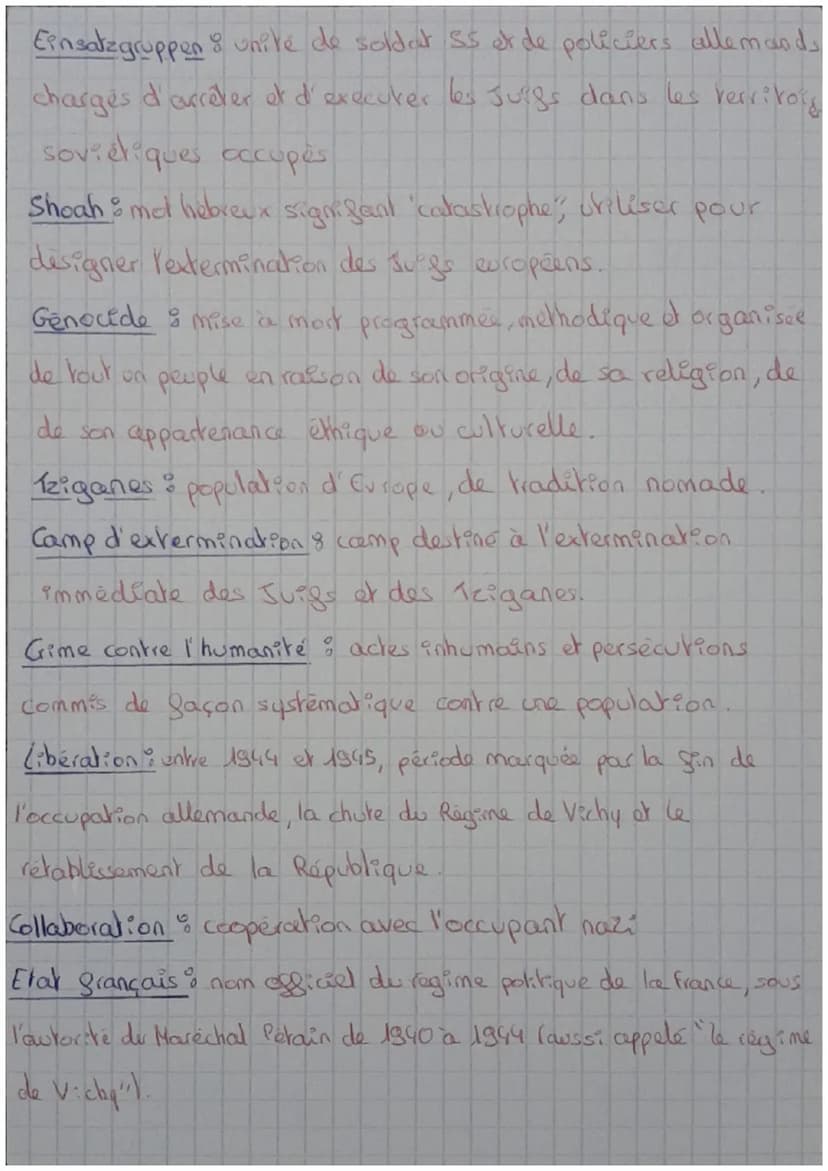 Einsatzgruppen : unité de soldat SS et de policiers allemands
chargés d'arrêter et d'executer les Juifs dans les territoires
soviétiques occupés
Shoah : mot hébreux signifiant "catastrophe", utiliser pour
désigner l'extermination des Juifs européens.
Génocide : mise à mort programmée, méthodique et organisée
de tout un peuple en raison de son origine, de sa religion, de
de son appartenance éthique ou culturelle.
Tziganes : population d'Europe, de tradition nomade.
Camp d'extermination : camp destiné à l'extermination
immédiate des Juifs et des Tziganes.
Crime contre l'humanité : actes inhumains et persécutions
commis de façon systématique contre une population.
Libération : entre 1944 et 1945, période marquée par la fin de
l'occupation allemande, la chute du Régime de Vichy et le
rétablissement de la République.
Collaboration : coopération avec l'occupant nazi
Etat français : nom officiel du régime politique de la france, sous
l'autorité du Maréchal Pétain de 1940 à 1944 (aussi appelé "le régime
de Vichy").